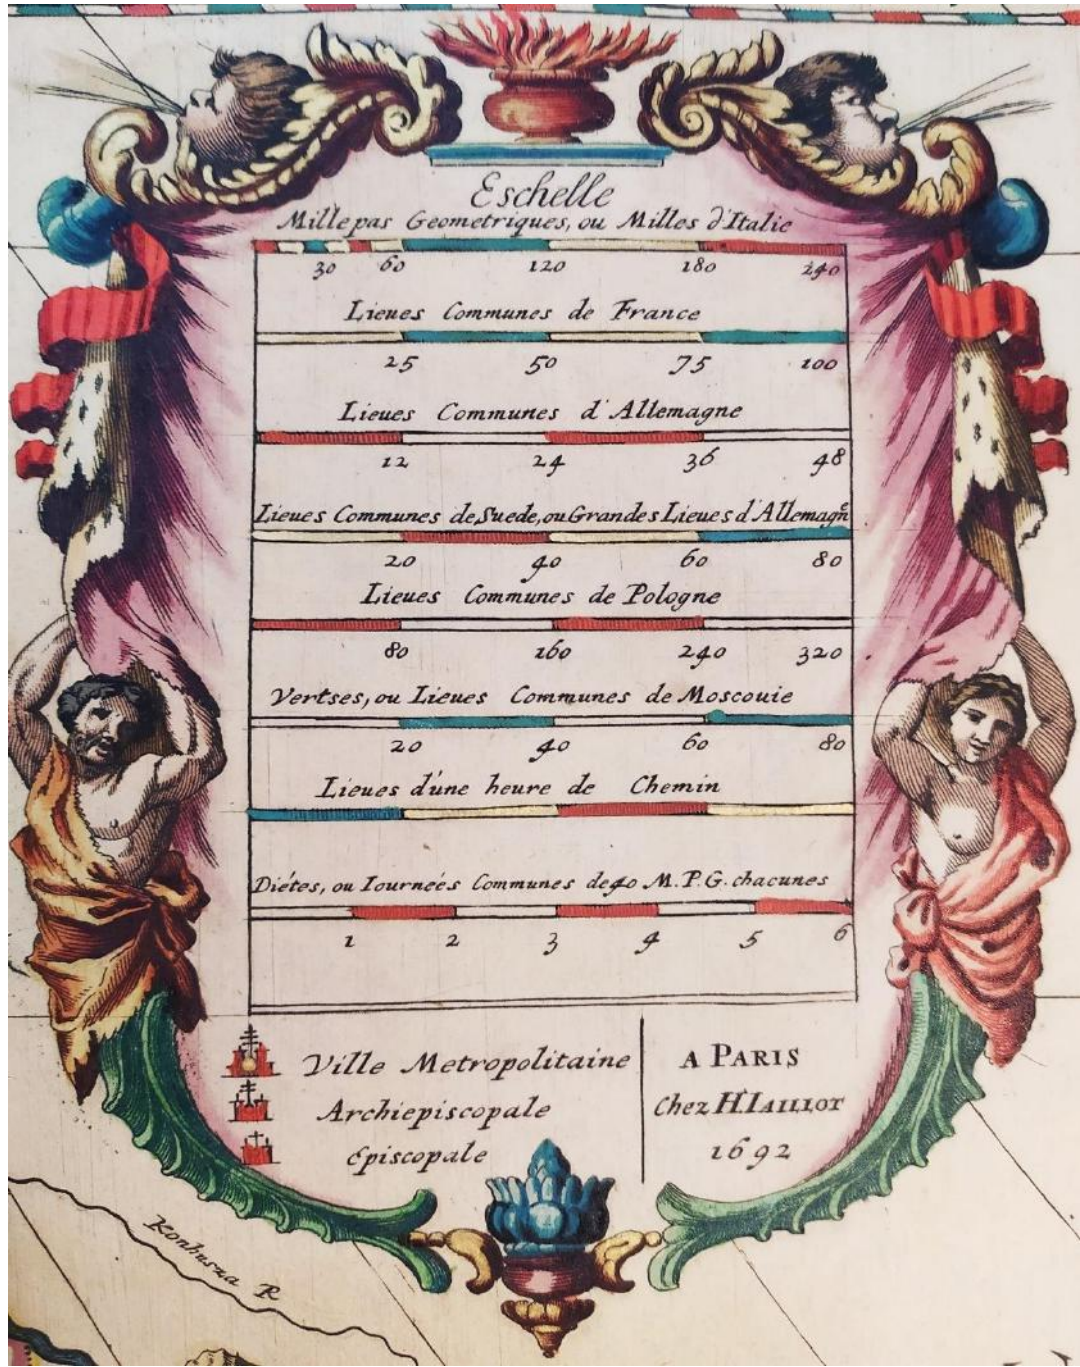 Eschelle
Mille pas Geometriques, ou Milles d'Italie
30 60 120 180 240
Lieues Communes de France
25 50 75 100
Lieues Communes d'Allemagne
12 24 36 48
Lieues Communes de Suede, ou Grandes Lieues d'Allemagne
20 40 60 80
Lieues Communes de Pologne
80 160 240 320
Vertses, ou Lieues Communes de Moscouie
20 40 60 80
Lieues d'une heure de Chemin
Diétes, ou Iourneés Communes de 40 M.P.G. chacunes
1 2 3 4 5 6
Ville Metropolitaine
Archiepiscopale
Episcopale
A PARIS
Chez H. IAILLOT
1692
Konhusza R